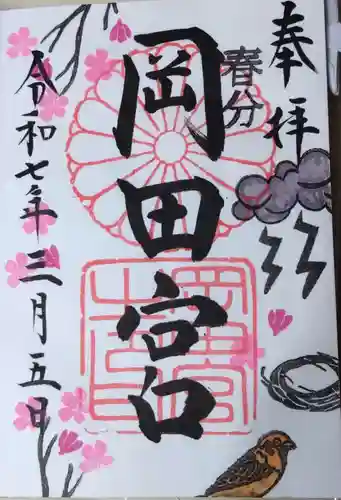 奉拝
春分
岡田宮
令和七年三月五日